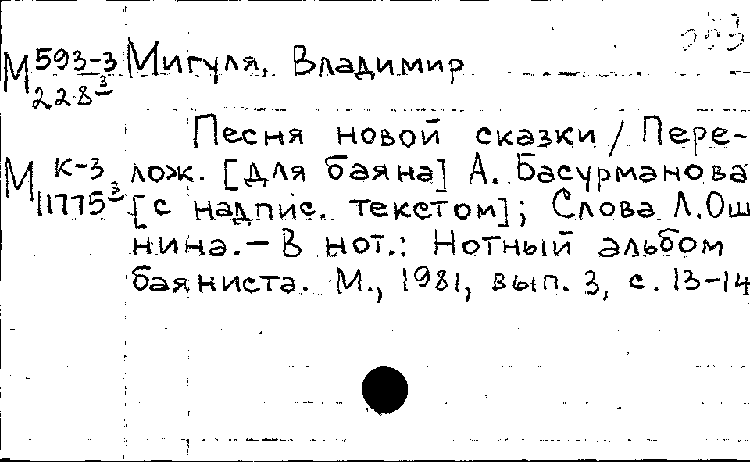 М 593-3 Мигуля, Владимир
22832
Песня новой сказки / Пере-
М К-3 лож. [для баяна] А. Басурманова
11775 3 [с надпис. текстом]; Слова Л.Ош
нина. – В нот.: Нотный альбом
баяниста. М., 1981, вып. 3, с. 13-14